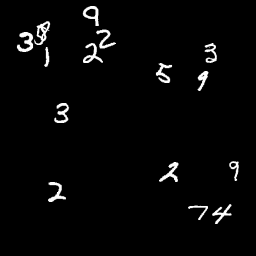 9
3 2
1 2 3
5 9
3
2 9
2
7 4